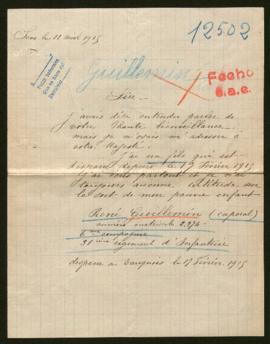 Sens le 11 avril 1915
12502
Guillemin
Fecho
s.a.e.
Sire
j'avais dire entendre parler de
votre Haute bienveillance
mais je m'adresse à
votre Majesté
J'ai un fils qui est
disparu depuis le 17 février 1915
J'ai partout et n'ai
toujours aucune certitude sur
le sort de mon pauvre enfant
René Guillemin (caporal)
numéro matricule 2974
6ème compagnie
31ième régiment d'Infanterie
disparu à Vauquois le 17 Février 1915